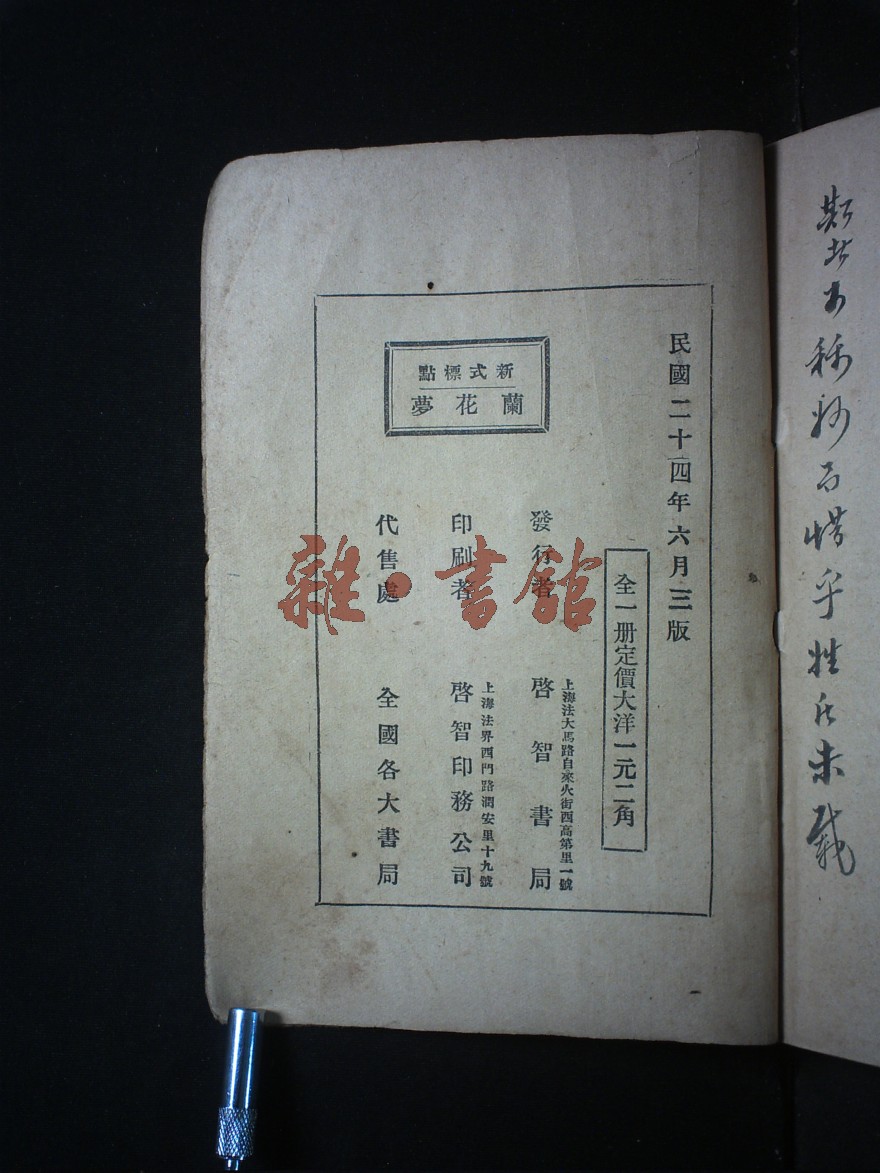 民國二十四年六月三版
全一册定價大洋一元二角
新式標點
蘭花夢
發行者
上海法大馬路自來火街西高第里一號
啓智書局
印刷者
上海法界西門路潤安里十九號
啓智印務公司
代售處
全國各大書局
雜·書館